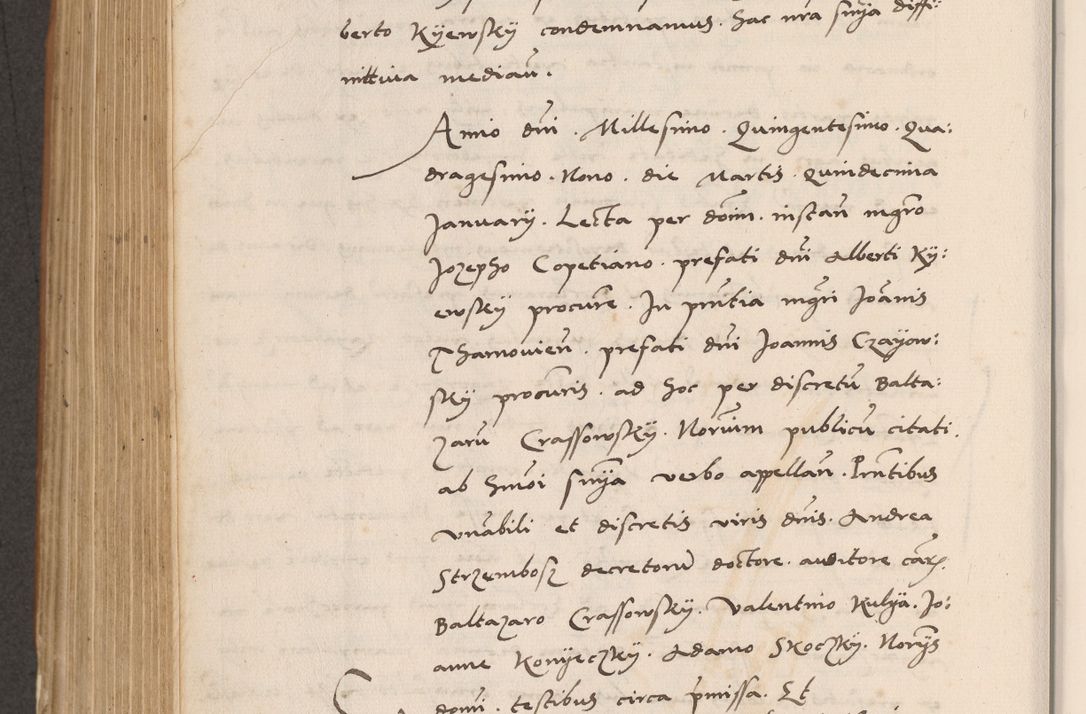 berto Kyewsky condemnamus. hac nra snÿa diffi⸗
nittiua median̄.
Anno dni. Millesimo. Quingentesimo. Qua:
dragesimo. Nono. die Martis. Quindecima
Januarÿ. Lecta per dom̄. instan̄ mgro
Jozepho Copetiano. prefati dni Alberti Kÿ:
ewskÿ procurē. In pn̄tia mgri Joānis
Tharnovien̄. prefati dni Joannis Czayow:
skÿ procuris. ad hoc per discretū Balta:
zarū Crassowskÿ. Norium publicū citati.
ab hmōi snÿa verbo appellan̄. Pn̄tibus
vn̄abili et discretis viris dnis. Andrea
Strzembosz decretorū doctore. auditore cār.
Baltazaro Crassowskÿ. Valentino Kulya. Jo:
anne Konyeczkÿ. Adamo Skoczkÿ. Norÿs
domi. testibus circa pmissa. Et